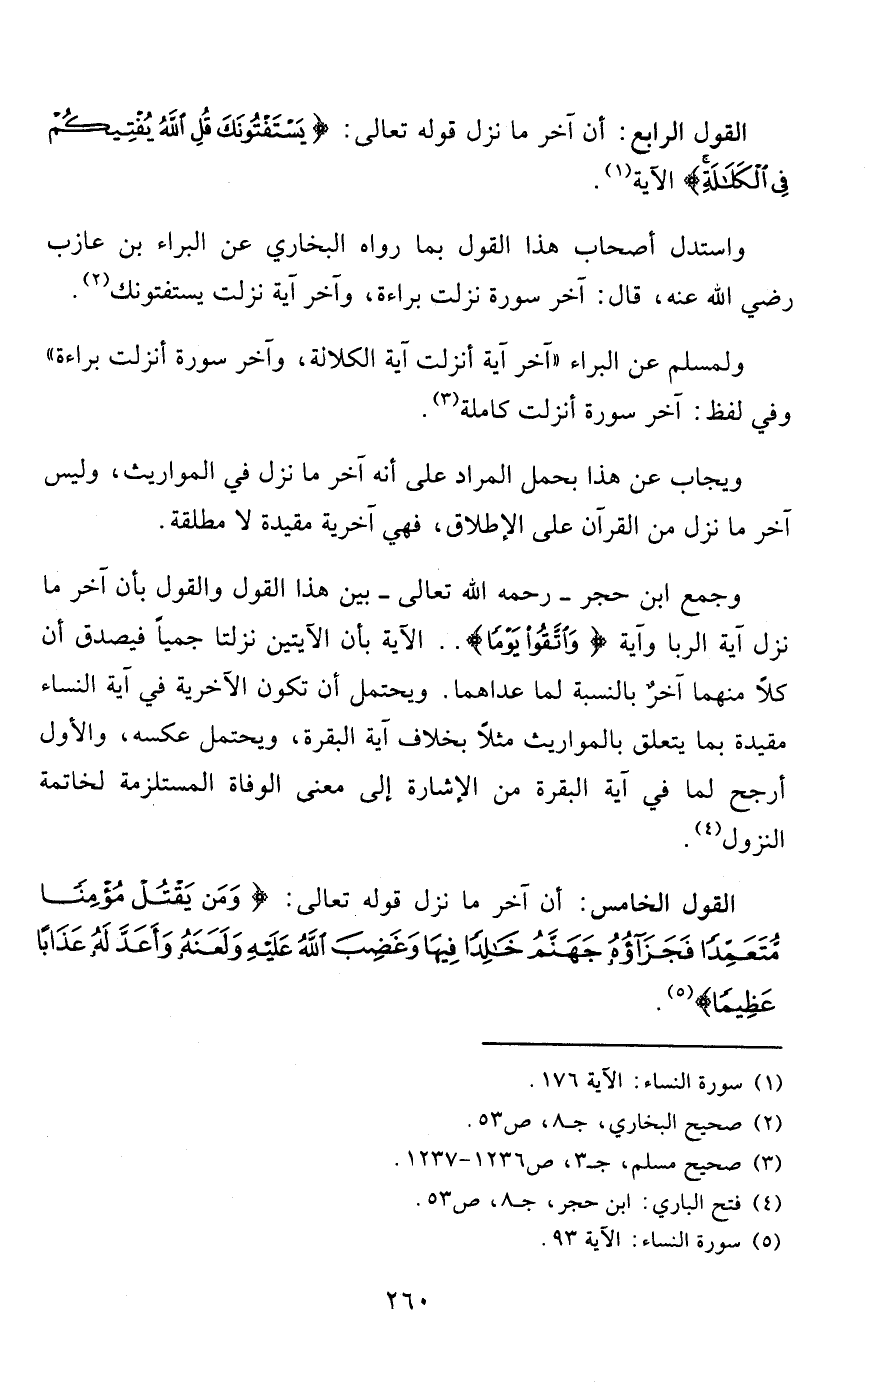 القول الرابع: أن آخر ما نزل قوله تعالى: ﴿يَسْتَفْتُونَكَ قُلِ ٱللَّهُ يُفْتِيكُمْ
فِى ٱلْكَلَـٰلَةِۚ﴾ الآية(١).
واستدل أصحاب هذا القول بما رواه البخاري عن البراء بن عازب
رضي الله عنه، قال: آخر سورة نزلت براءة، وآخر آية نزلت يستفتونك(٢).
ولمسلم عن البراء «آخر آية أنزلت آية الكلالة، وآخر سورة أنزلت براءة»
وفي لفظ: آخر سورة أنزلت كاملة(٣).
ويجاب عن هذا بحمل المراد على أنه آخر ما نزل في المواريث، وليس
آخر ما نزل من القرآن على الإطلاق، فهي آخرية مقيدة لا مطلقة.
وجمع ابن حجر ـ رحمه الله تعالى ـ بين هذا القول والقول بأن آخر ما
نزل آية الربا وآية ﴿وَٱتَّقُوا۟ يَوْمًا﴾.. الآية بأن الآيتين نزلتا جمياً فيصدق أن
كلاً منهما آخرٌ بالنسبة لما عداهما. ويحتمل أن تكون الآخرية في آية النساء
مقيدة بما يتعلق بالمواريث مثلاً بخلاف آية البقرة، ويحتمل عكسه، والأول
أرجح لما في آية البقرة من الإشارة إلى معنى الوفاة المستلزمة لخاتمة
النزول(٤).
القول الخامس: أن آخر ما نزل قوله تعالى: ﴿وَمَن يَقْتُلْ مُؤْمِنًا
مُّتَعَمِّدًا فَجَزَآؤُهُۥ جَهَنَّمُ خَـٰلِدًا فِيهَا وَغَضِبَ ٱللَّهُ عَلَيْهِ وَلَعَنَهُۥ وَأَعَدَّ لَهُۥ عَذَابًا
عَظِيمًا﴾(٥).
(١) سورة النساء: الآية ١٧٦.
(٢) صحيح البخاري، جـ٨، ص٥٣.
(٣) صحيح مسلم، جـ٣، ص١٢٣٦-١٢٣٧.
(٤) فتح الباري: ابن حجر، جـ٨، ص٥٣.
(٥) سورة النساء: الآية ٩٣.
٢٦٠